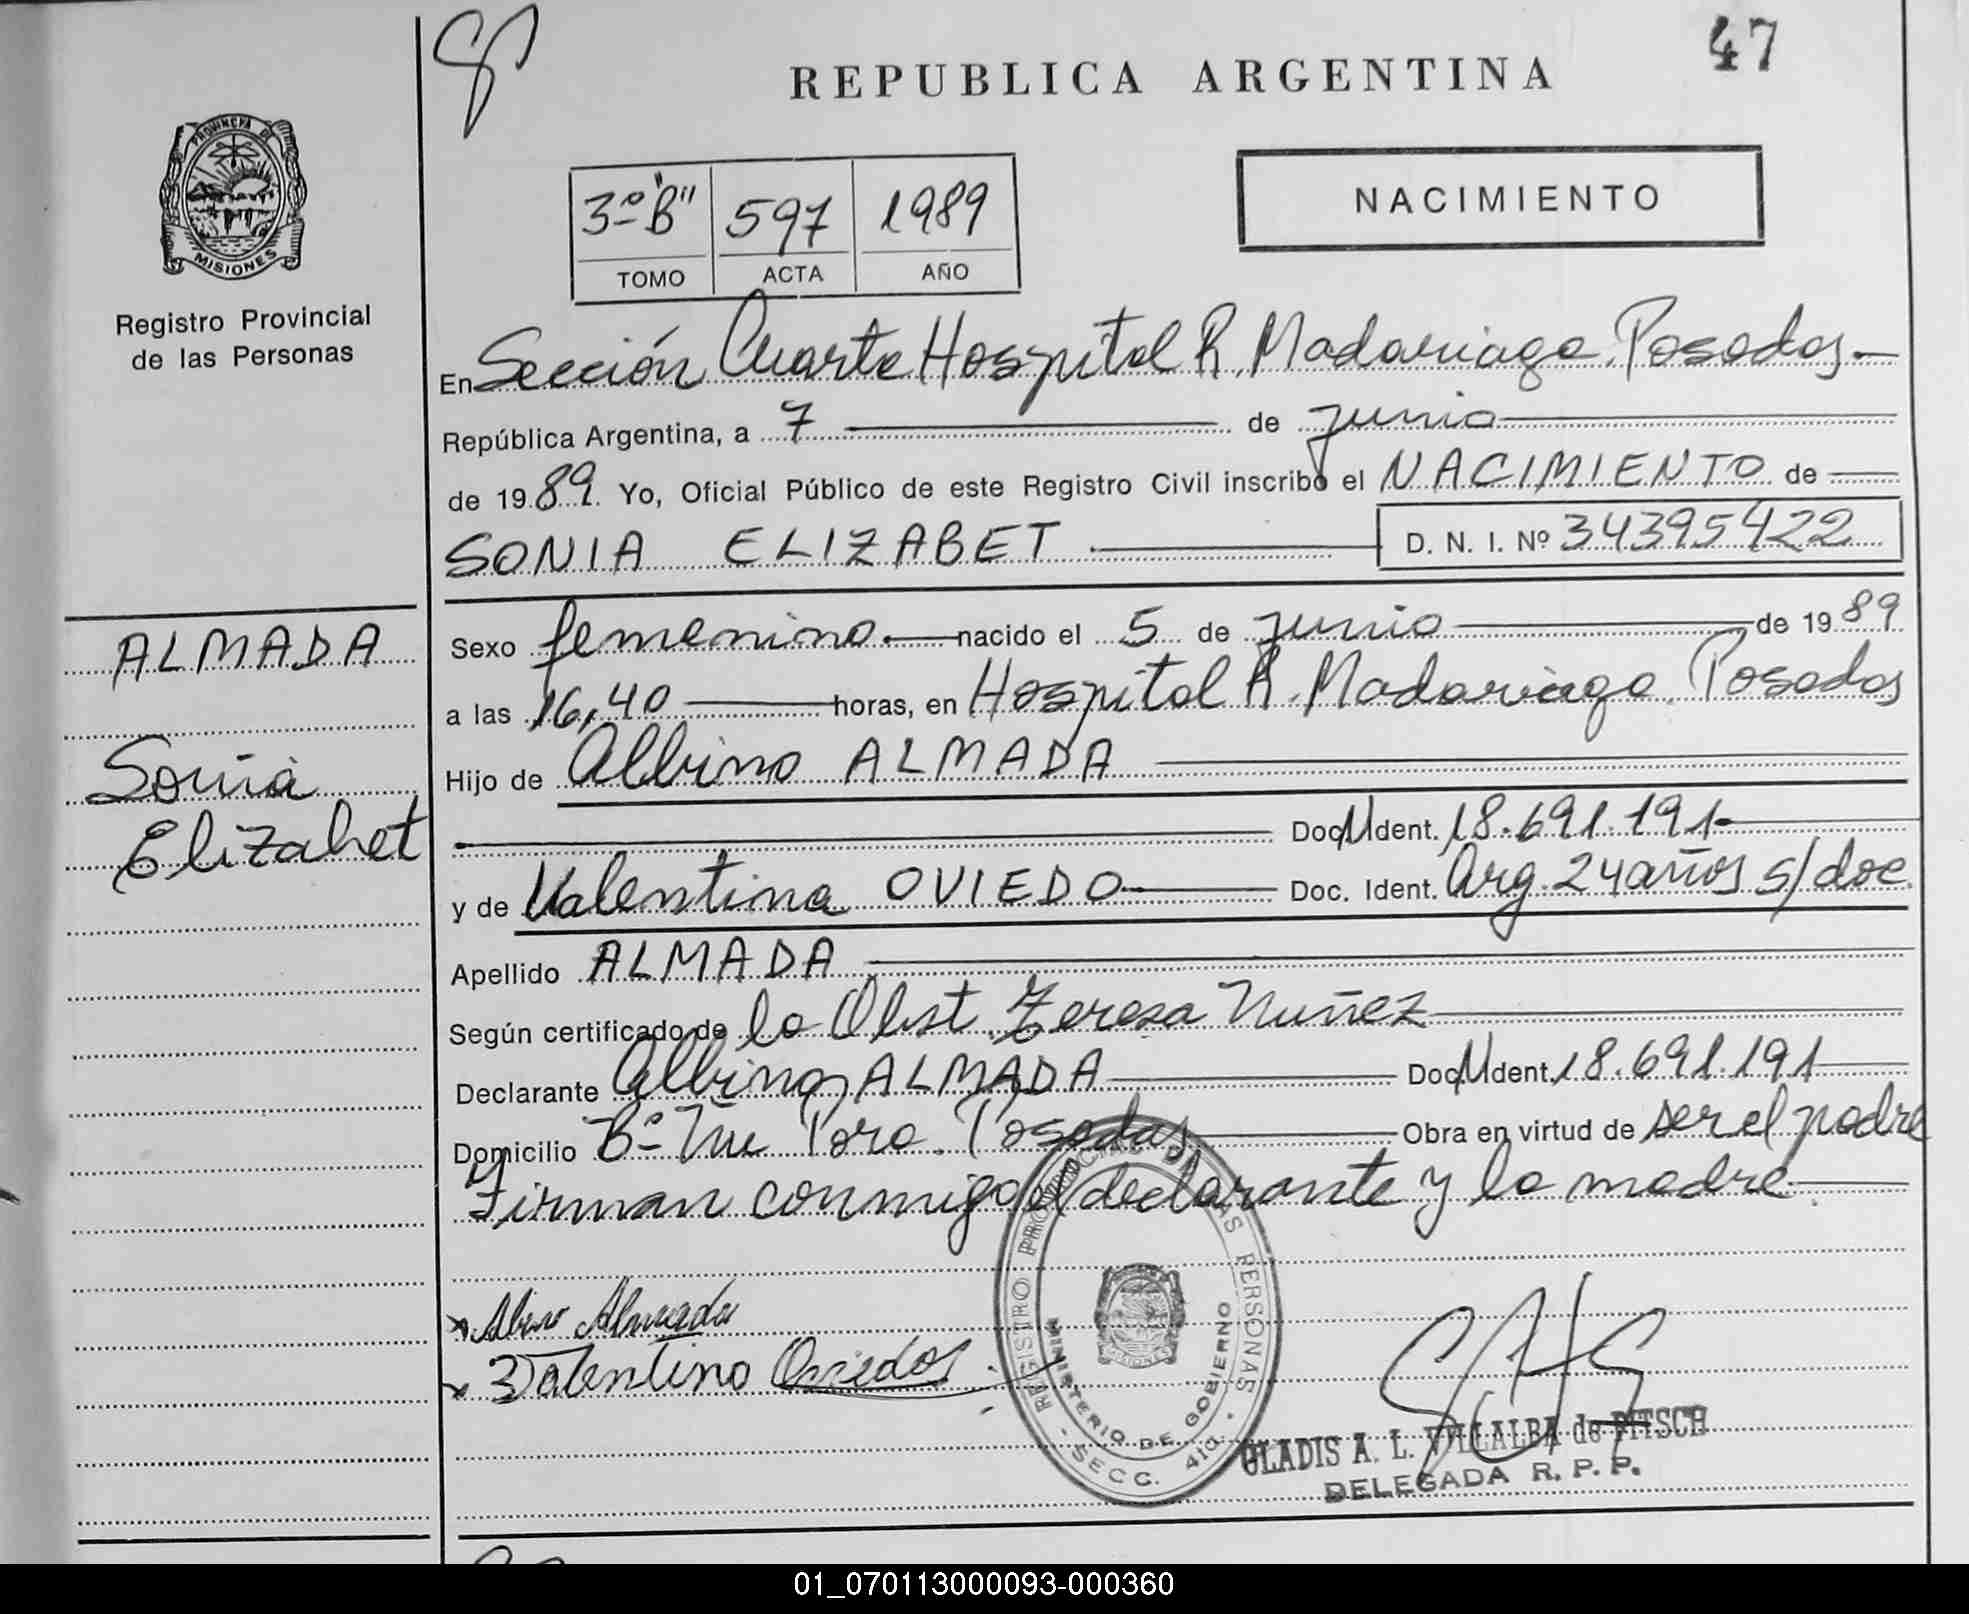 47
REPUBLICA ARGENTINA
PROVINCIA DE
MISIONES
Registro Provincial
de las Personas
3º "B" 597 1989
TOMO ACTA AÑO
NACIMIENTO
En Sección Cuarta Hospital R. Madariaga. Posadas.
República Argentina, a 7 de junio
de 1989. Yo, Oficial Público de este Registro Civil inscribo el NACIMIENTO de
SONIA ELIZABET D. N. I. Nº 34395422
ALMADA
Sonia
Elizabet
Sexo femenino. nacido el 5 de junio de 1989
a las 16,40 horas, en Hospital R. Madariaga. Posadas
Hijo de Albino ALMADA
Doc. Ident. 18.691.191
y de Valentina OVIEDO Doc. Ident. Arg. 24 años s/doc.
Apellido ALMADA
Según certificado de la Obst. Teresa Nuñez
Declarante Albino ALMADA Doc. Ident. 18.691.191
Domicilio Bº Posadas Obra en virtud de ser el padre
Firman conmigo el declarante y la madre.
Albino Almada
Valentina Oviedo
REGISTRO PROVINCIAL DE LAS PERSONAS
MINISTERIO DE GOBIERNO
MISIONES
SECC. 4ta.
GLADIS A. L. VILLALBA de PITSCH
DELEGADA R. P. P.
01_070113000093-000360